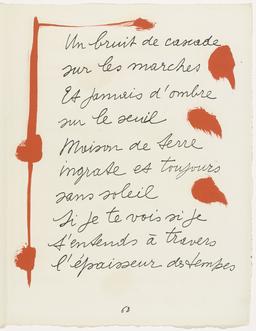 Un bruit de cascade
sur les marches
Et jamais d'ombre
sur le seuil
Maison de terre
ingrate et toujours
sans soleil
Si je te vois si je
t'entends à travers
l'épaisseur des temps